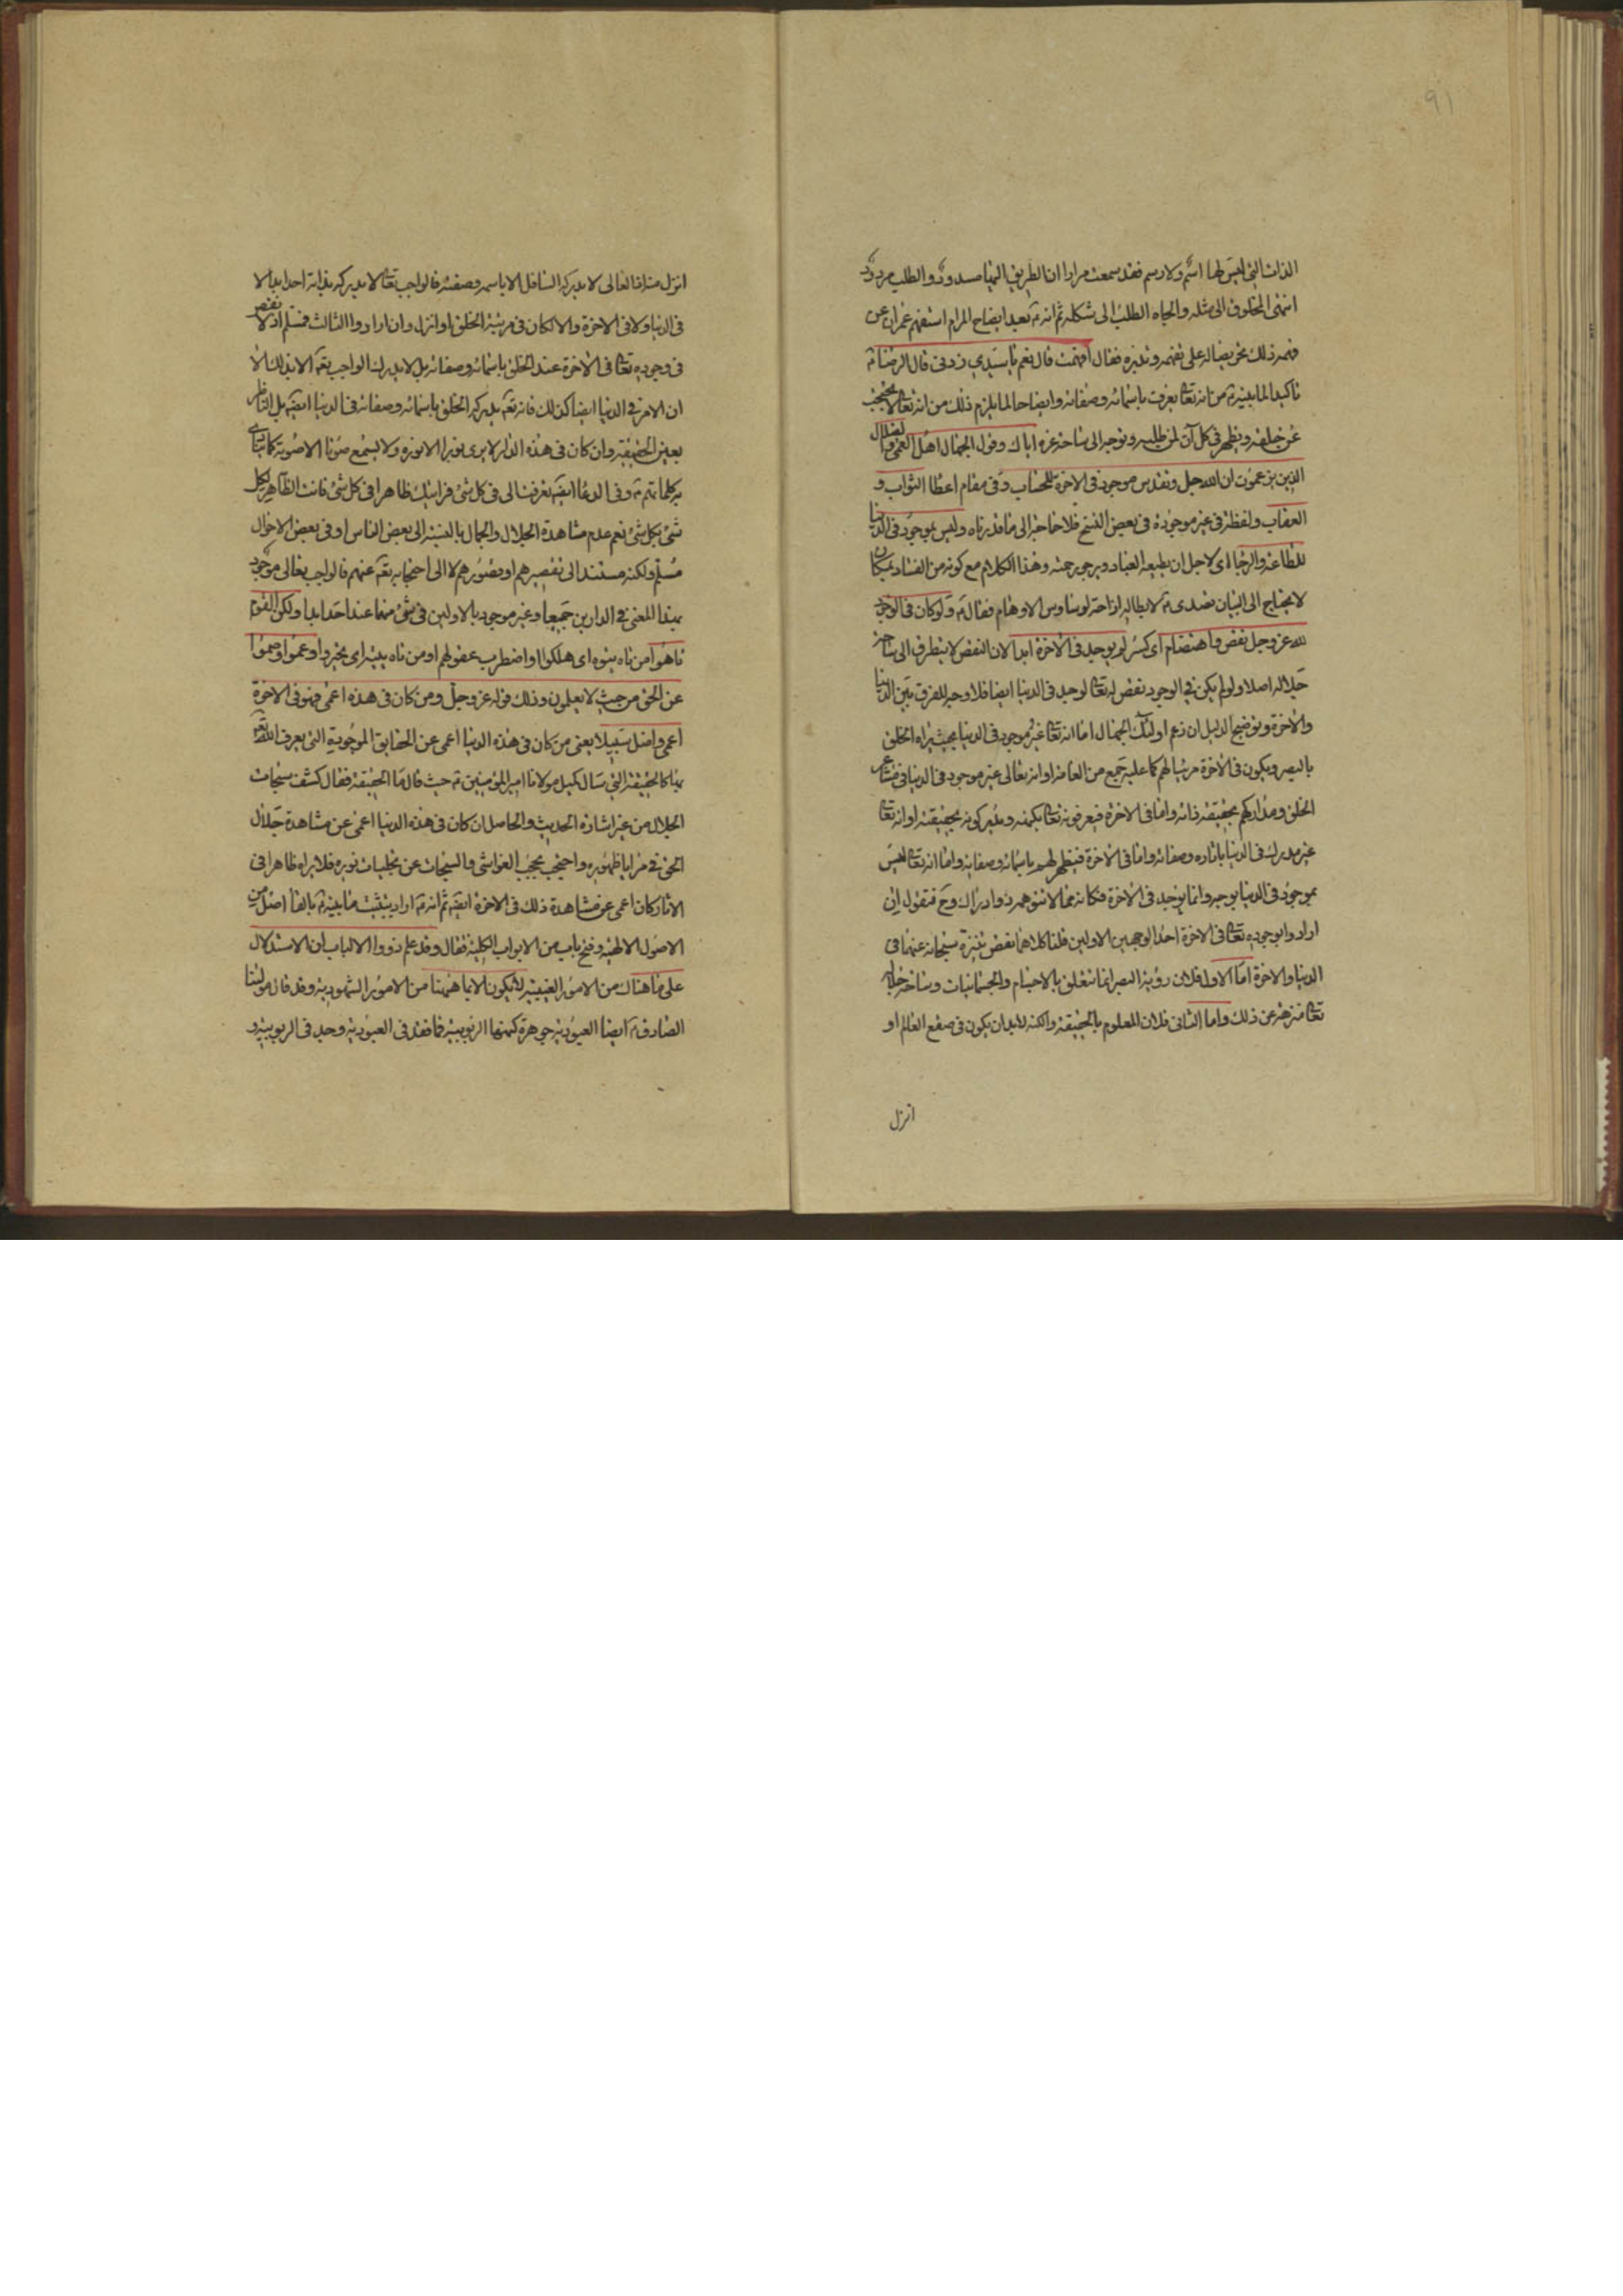 ٩١
الذات التي ليس لها اسم ولا رسم فقد سمعت مرارا ان الطريق اليها مسدود والطلب مردود
انتهى المخلوق الى مثله والجاه الطلب الى شكله ثم انه ع بعد ايضاح المرام استفهم عمران عن
فهمه ذلك تحريضا له على تفهمه وتدبره فقال افهمت قال نعم يا سيدي زدني قال الرضا ع
تاكيدا لما بينه ع من انه تعا يعرف باسمائه وصفاته وايضاحا لما يلزم ذلك من انه تعا لا يحتجب
عن خلقه ويظهر في كل آن لمن طلبه وتوجه الى ساحة عزه اياك وقول الجهال اهل العمى والضلال
الذين يزعمون ان الله جل وتقدس موجود في الاخرة للحساب وفي مقام اعطا الثواب و
العقاب ولفظة في غير موجودة في بعض النسخ فلا حاجة الى ما قدرناه وليس بموجود في الدنيا
للطاعة والرجا اى لاجل ان يطيعه العباد ويرجو رحمته وهذا الكلام مع كونه من الفساد بمكان
لا يحتاج الى البيان تصدى ع لابطاله ازاحة لوساوس الاوهام فقال ع ولو كان في الوجود
لله عز وجل نقص واهتضام اى كسر لم يوجد في الاخرة ابدا لان النقص لا يتطرق الى ساحة
جلاله اصلا ولو لم يكن في الوجود نقص له تعا لوجد في الدنيا ايضا فلا وجه للفرق بين الدنيا
والاخرة وتوضيح الدليل ان زعم اولئك الجهال اما انه تعا غير موجود في الدنيا بحيث يراه الخلق
بالبصر ويكون في الاخرة مرئيا لهم كما عليه جمع من العامة او انه تعالى غير موجود في الدنيا في مشاعر
الخلق ومداركهم بحقيقة ذاته واما في الاخرة فيعرفونه تعا بكنهه ويدركونه بحقيقته او انه تعا
غير مدرك في الدنيا باثاره وصفاته واما في الاخرة فيظهر لهم باسمائه وصفاته واما انه تعا ليس
بموجود في الدنيا بوجه وانما يوجد في الاخرة فكانه مما لا يتوهمه ذو ادراك وح فنقول ان
ارادوا بوجوده تعا في الاخرة احد الوجهين الاولين قلنا كلاهما نقص تنزه سبحانه عنهما في
الدنيا والاخرة اما الاول فلان رؤية البصر انما تتعلق بالاجسام والجسمانيات وساحة جلاله
تعا منزهة عن ذلك واما الثاني فلان المعلوم بالحقيقة والكنه لابد ان يكون في صقع العالم او
انزل
انزل منه اذ العالى لا يدركه السافل الا باسمه وصفته فالواجب تعا لا يدركه بذاته احد ابدا لا
في الدنيا ولا في الاخرة والا لكان في مرتبة الخلق او انزل وان ارادوا الثالث فمسلم اذ لا نقص
في وجوده تعا في الاخرة عند الخلق باسمائه وصفاته بل لا يدرك الواجب تعه الا بذلك الا
ان الامر في الدنيا ايضا كذلك فانه تعه يدركه الخلق باسمائه وصفاته في الدنيا ايضه بل الناظر
بعين الحقيقة وان كان في هذه الدار لا يرى نورا الا نوره ولا يسمع صوتا الا صوته كما ينادي
به كلماتهم ع وفي الدعا ايضه تعرفت الى في كل شئ فرايتك ظاهرا في كل شئ فانت الظاهر لكل
شئ بكل شئ نعم عدم مشاهدة الجلال والجمال بالنسبة الى بعض الناس او في بعض الاحوال
مسلم ولكنه مستند الى تقصيرهم او قصورهم لا الى احتجابه تعه عنهم فالواجب تعالى موجود
بهذا المعنى في الدارين جميعا وغير موجود بالاولين في شئ منهما عند احد ابدا ولكن القوم
تاهوا من تاه يتوه اى هلكوا واضطرب عقولهم او من تاه يتيه اى تحيروا وعموا وصموا
عن الحق من حيث لا يعلمون وذلك قوله عز وجل ومن كان في هذه اعمى فهو في الاخرة
اعمى واضل سبيلا يعنى من كان في هذه الدنيا اعمى عن الحقايق الموجودية التي يعرف الله تعه
بها كالحقيقة التي سال كميل مولانا امير المؤمنين ع حيث قال ما الحقيقة فقال كشف سبحات
الجلال من غير اشارة الحديث والحاصل ان كان في هذه الدنيا اعمى عن مشاهدة جلال
الحق في مرايا ظهوره واحتجب بحجب الغواشى والسبحات عن تجليات نوره فلا يراه ظاهرا في
الاثار كان اعمى عن مشاهدة ذلك في الاخرة ايضه ثم انه ع اراد تثبيت ما بينه ع بالقا اصل من
الاصول الالهية وفتح باب من الابواب الكلية فقال وقد علم ذووا الالباب ان الاستدلال
على ما هناك من الامور الغيبية لا يكون الا بما هيهنا من الامور الشهودية وقد قال مولينا
الصادق ع ايضا العبودية جوهرة كنهها الربوبية فما فقد في العبودية وجد في الربوبية و